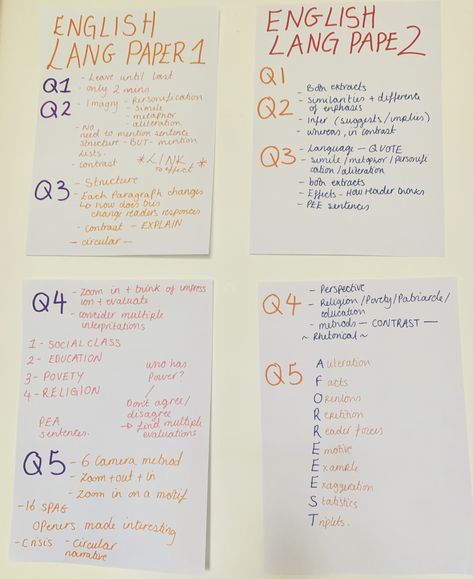 ENGLISH
LANG PAPER 1
Q1 - Leave until last
- only 2 mins
Q2 - Imagry - Personification
- Simile
- metaphor
- aliteration
- No
need to mention sentence
structure - BUT - mention
Lists.
- contrast * LINK *
to effect
Q3 - Structure
- Each Paragraph changes
↳ how does this
change readers responses
- contrast - EXPLAIN
- circular -
Q4 - Zoom in + think of impress
ion + evaluate
- consider multiple
interpritations
1 - SOCIAL CLASS
2 - EDUCATION
3 - POVETY
4 - RELIGION
who has
Power?
/
Dont agree/
disagree
→ find multiple
evaluations
PEA
sentences.
Q5 - 6 Camera method
- Zoom + out + in
- Zoom in on a motif
- 16 SPAG
openers made interesting
- Crisis - Circular
narrative
ENGLISH
LANG PAPE 2
Q1
Q2 - Both extracts
- similarities + difference
of enphases
- Infer (suggests/implies)
- whereas, in contrast
Q3 - Language - QUOTE
- simile/metaphor/personifi
cation/aliteration
- both extracts
- Effects - How reader thinks
- PEE sentences
Q4 - Perspective
- Religion/Povety/Patriarcle/
education
- methods - CONTRAST -
~ Rhetorical ~
Q5 Aliteration
Facts
Opinions
Repetition
Reader focus
Emotive
Example
Exaggeration
Statistics
Triplets.